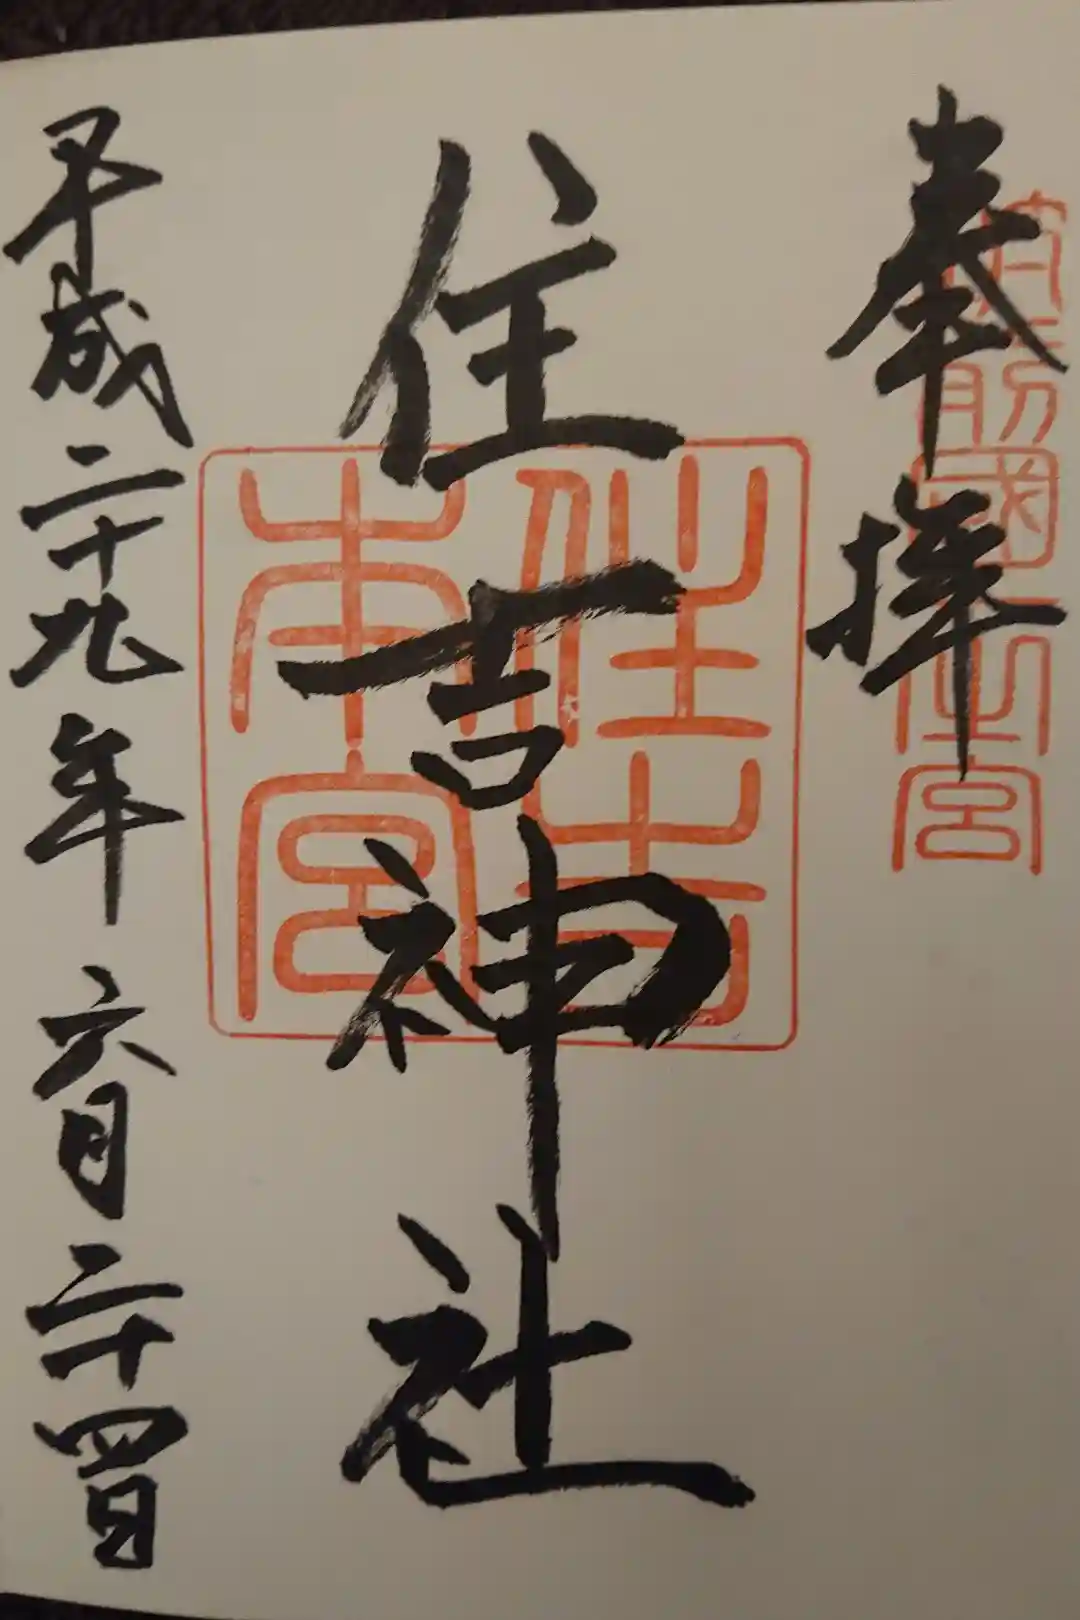 奉拝
筑前國一之宮
住吉神社
住吉本宮
平成二十九年六月二十四日